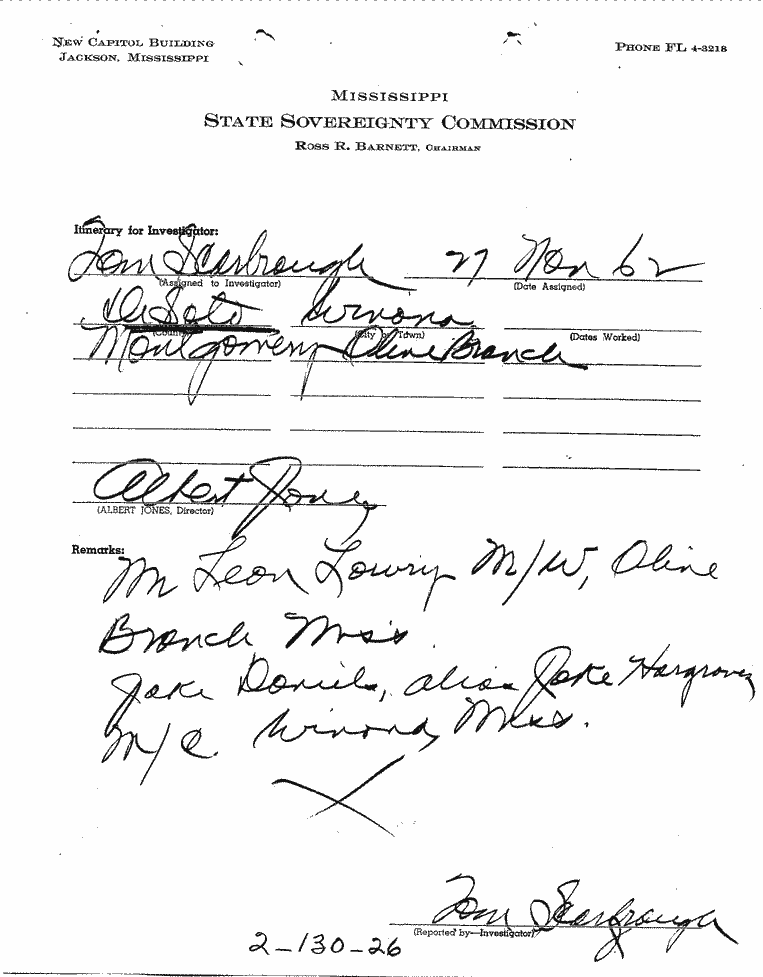 NEW CAPITOL BUILDING
JACKSON, MISSISSIPPI
PHONE FL 4-3218
MISSISSIPPI
STATE SOVEREIGNTY COMMISSION
ROSS R. BARNETT, CHAIRMAN
Itinerary for Investigator:
Tom Scarbrough 27 Nov 62
(Assigned to Investigator) (Date Assigned)
DeSoto Winona
(County) (City or Town) (Dates Worked)
Montgomery Olive Branch
Albert Jones
(ALBERT JONES, Director)
Remarks:
Mr Leon Lowry M/W, Olive
Branch Miss.
Jake Daniels, alias Jake Hargroves
M/C. Winona, Miss.
Tom Scarbrough
(Reported by—Investigator)
2-130-26